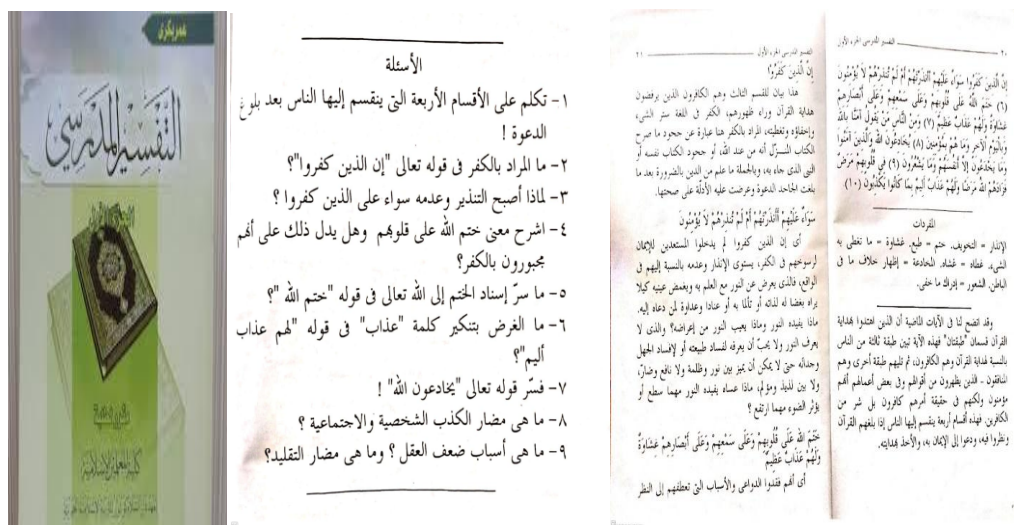 عمر بكري
التفسير المدرسي
الأسئلة
١- تكلم على الأقسام الأربعة التى ينقسم إليها الناس بعد بلوغ
الدعوة !
٢- ما المراد بالكفر فى قوله تعالى "إن الذين كفروا"؟
٣- لماذا أصبح التنذير وعدمه سواء على الذين كفروا ؟
٤- اشرح معنى ختم الله على قلوبهم وهل يدل ذلك على أنهم
مجبورون بالكفر؟
٥- ما سرّ إسناد الختم إلى الله تعالى فى قوله "ختم الله "؟
٦- ما الغرض بتنكير كلمة "عذاب" فى قوله "لهم عذاب
أليم"؟
٧- فسّر قوله تعالى "يخادعون الله" !
٨- ما هى مضار الكذب الشخصية والاجتماعية ؟
٩- ما هى أسباب ضعف العقل ؟ وما هى مضار التقليد؟
٢٠ التفسير المدرسي الجزء الأول
إِنَّ الَّذِينَ كَفَرُوا سَوَاءٌ عَلَيْهِمْ أَأَنذَرْتَهُمْ أَمْ لَمْ تُنذِرْهُمْ لَا يُؤْمِنُونَ
(٦) خَتَمَ اللَّهُ عَلَى قُلُوبِهِمْ وَعَلَى سَمْعِهِمْ وَعَلَى أَبْصَارِهِمْ
غِشَاوَةٌ وَلَهُمْ عَذَابٌ عَظِيمٌ (٧) وَمِنَ النَّاسِ مَنْ يَقُولُ آمَنَّا بِاللَّهِ
وَبِالْيَوْمِ الْآخِرِ وَمَا هُمْ بِمُؤْمِنِينَ (٨) يُخَادِعُونَ اللَّهَ وَالَّذِينَ آمَنُوا
وَمَا يَخْدَعُونَ إِلَّا أَنْفُسَهُمْ وَمَا يَشْعُرُونَ (٩) فِي قُلُوبِهِمْ مَرَضٌ
فَزَادَهُمُ اللَّهُ مَرَضًا وَلَهُمْ عَذَابٌ أَلِيمٌ بِمَا كَانُوا يَكْذِبُونَ (١٠)
المفردات
الإنذار = التخويف. ختم = طبع. غشاوة = ما تغطى به
الشيء. غطاه = غشاه. المخادعة = إظهار خلاف ما فى
الباطن. الشعور = إدراك ما خفى.
وقد اتضح لنا فى الآيات الماضية أن الذين اهتدوا بهداية
القرآن قسمان "طبقتان" فهذه الآية تبين طبقة ثالثة من الناس
بالنسبة لهداية القرآن وهم الكافرون، ثم تليهم طبقة أخرى وهم
المنافقون - الذين يظهرون من أقوالهم وفى بعض أعمالهم أنهم
مؤمنون ولكنهم فى حقيقة أمرهم كافرون بل شر من
الكافرين. فهذه أقسام أربعة ينقسم إليها الناس إذا بلغهم القرآن
ونظروا فيه، ودعوا إلى الإيمان به، والأخذ بهدايته.
التفسير المدرسي الجزء الأول ٢١
إِنَّ الَّذِينَ كَفَرُوا
هذا بيان للقسم الثالث وهم الكافرون الذين يرفضون
هداية القرآن وراء ظهورهم، الكفر فى اللغة ستر الشىء
وإخفاؤه وتغطيته، المراد بالكفر هنا عبارة عن جحود ما صرح
الكتاب المنزّل أنه من عند الله، أو جحود الكتاب نفسه أو
النبى الذى جاء به، وبالجملة ما علم من الدين بالضرورة بعد ما
بلغت الجاحد الدعوة وعرضت عليه الأدلة على صحتها.
سَوَاءٌ عَلَيْهِمْ أَأَنْذَرْتَهُمْ أَمْ لَمْ تُنْذِرْهُمْ لَا يُؤْمِنُونَ
أى إن الذين كفروا لم يدخلوا المستعدين للإيمان
لرسوخهم فى الكفر، يستوى الإنذار وعدمه بالنسبة إليهم فى
الواقع، فالذى يعرض عن النور مع العلم به ويغمض عينيه كيلا
يراه بغضا له لذاته أو تألما به أو عنادا وعداوة لمن دعاه إليه.
ماذا يفيده النور وماذا يعيب النور من إعراضه؟ والذى لا
يعرف النور ولا يحبّ أن يعرفه لفساد طبيعته أو لإفساد الجهل
وجدانه حتى لا يمكن أن يميز بين نور وظلمة ولا نافع وضار،
ولا بين لذيذ ومؤلم، ماذا عساه يفيده النور مهما سطع أو
يؤثر الضوء مهما ارتفع ؟
خَتَمَ اللَّهُ عَلَى قُلُوبِهِمْ وَعَلَى سَمْعِهِمْ وَعَلَى أَبْصَارِهِمْ غِشَاوَةٌ
وَلَهُمْ عَذَابٌ عَظِيمٌ
أى أنهم فقدوا الدواعى والأسباب التى تعطفهم إلى النظر